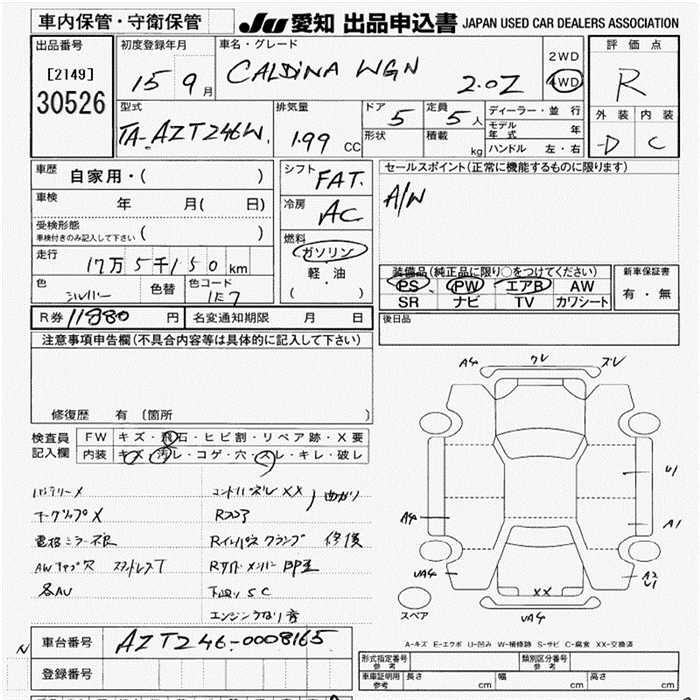 車内保管・守衛保管
JU 愛知 出品申込書 JAPAN USED CAR DEALERS ASSOCIATION
出品番号
[2149]
30526
初度登録年月
15 9月
車名・グレード
CALDINA WGN 2.0Z
2WD
4WD
評価点
R
外装 内装
D C
型式
TA-AZT246W.
排気量
1.99 CC
ドア
5
形状
定員
5人
積載
kg
ディーラー・並行
モデル年式 年
ハンドル 左・右
車歴
自家用・( )
車検
年 月( 日)
受検形態
車検付きのみ記入して下さい ( )
走行
17万5千150km
色
シルバー
色替
色コード
1E7
シフト
FAT.
冷房
AC
燃料
ガソリン
軽・油
( )
セールスポイント(正常に機能するものに限ります)
A/W
装備品(純正品に限り○をつけてください)
PS PW エアB AW
SR ナビ TV カワシート
新車保証書
有・無
R券 11880 円
名変通知期限 月 日
後日品
注意事項申告欄(不具合内容等は具体的に記入して下さい)
修復歴 有 〔箇所 〕
検査員
記入欄
FW キズ・飛石・ヒビ割・リペア跡・X要
内装 キズ・汚レ・コゲ・穴・スレ・キレ・破レ
バッテリーX
AWキャップ欠
各AU
Rインパネクランプ 修復
下廻りSC
エンジン
A4 ワレ ズレ
U1
A4
A1
UA4
A2
U1
XX
UA4
スペア
A-キズ E-エクボ U-凹み W-補修跡 S-サビ C-腐食 XX-交換済
N
車台番号
AZT246-0008165
登録番号
型式指定番号
参考
類別区分番号
参考
車庫証明用
参考
長さ cm 幅 cm 高さ cm